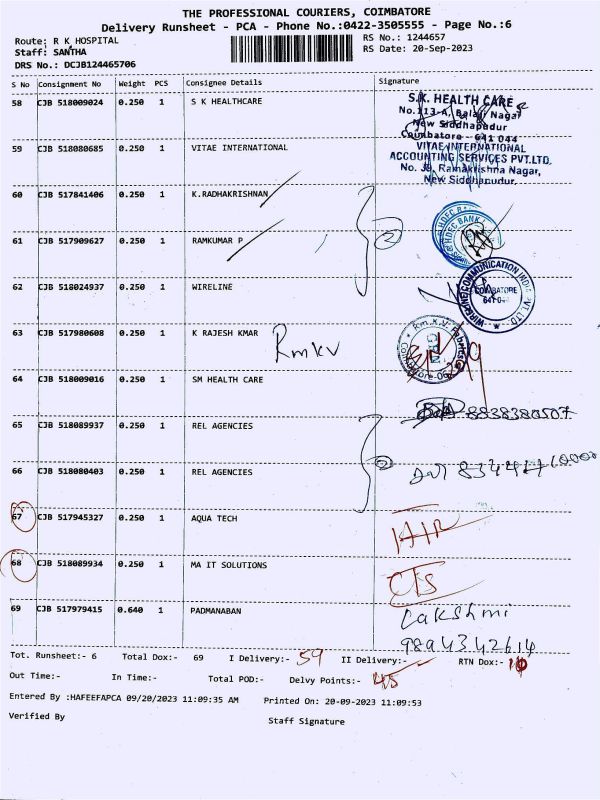 THE PROFESSIONAL COURIERS, COIMBATORE
Delivery Runsheet - PCA - Phone No.:0422-3505555 - Page No.:6
Route: R K HOSPITAL
Staff: SANTHA
DRS No.: DCJB124465706
RS No.: 1244657
RS Date: 20-Sep-2023
S No Consignment No Weight PCS Consignee Details Signature
58 CJB 518009024 0.250 1 S K HEALTHCARE
S.K. HEALTH CARE
No.113-A, Balaji Nagar
New Siddhapudur
Coimbatore - 641 044
59 CJB 518080685 0.250 1 VITAE INTERNATIONAL
VITAE INTERNATIONAL
ACCOUNTING SERVICES PVT.LTD.
No. 39, Ramakrishna Nagar,
New Siddhapudur.
60 CJB 517841406 0.250 1 K.RADHAKRISHNAN
61 CJB 517909627 0.250 1 RAMKUMAR P
2
HDFC BANK
62 CJB 518024937 0.250 1 WIRELINE
COIMBATORE
63 CJB 517980608 0.250 1 K RAJESH KMAR
Rmkv
64 CJB 518009016 0.250 1 SM HEALTH CARE
8838380507
65 CJB 518089937 0.250 1 REL AGENCIES
66 CJB 518080403 0.250 1 REL AGENCIES
2
67 CJB 517945327 0.250 1 AQUA TECH
68 CJB 518089934 0.250 1 MA IT SOLUTIONS
CTS
69 CJB 517979415 0.640 1 PADMANABAN
Lakshmi
9894342614
Tot. Runsheet:- 6 Total Dox:- 69 I Delivery:- 59 II Delivery:- RTN Dox:- 10
Out Time:- In Time:- Total POD:- Delvy Points:- 45
Entered By :HAFEEFAPCA 09/20/2023 11:09:35 AM Printed On: 20-09-2023 11:09:53
Verified By Staff Signature